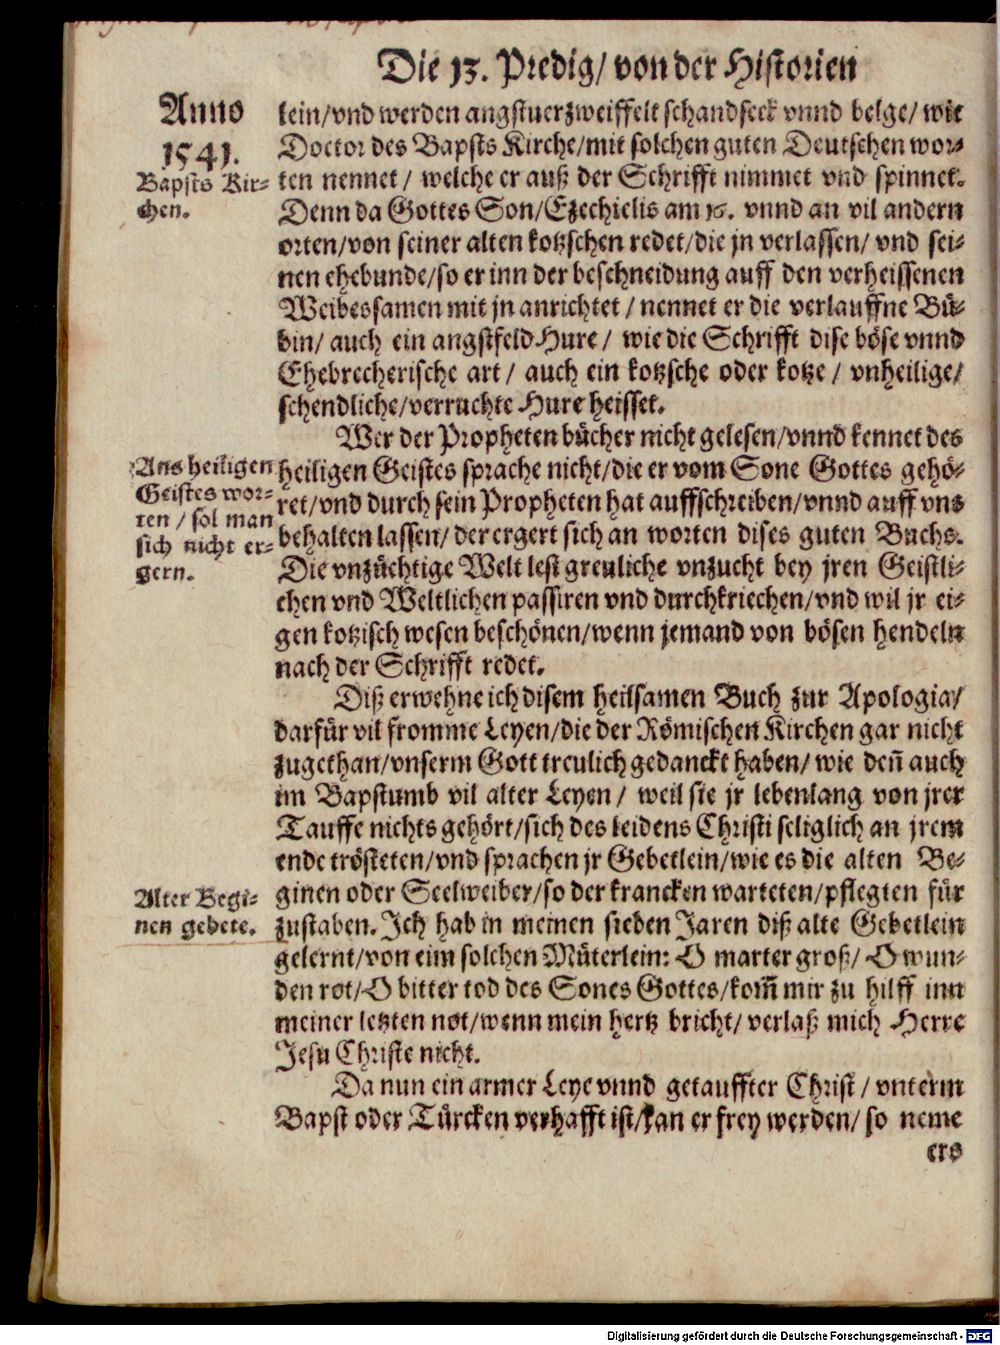 Die 13. Predig/ von der Historien
Anno
1541.
Bapsts Kir-
chen.
lein/vnd werden angstuerzweiffelt schandseck vnnd belge/ wie
Doctor des Bapsts Kirche/mit solchen guten Deutschen wor-
ten nennet / welche er auß der Schrifft nimmet vnd spinnet.
Denn da Gottes Son/Ezechielis am 16. vnnd an vil andern
orten/von seiner alten kotzschen redet/die jn verlassen/ vnd sei-
nen ehebunde/so er inn der beschneidung auff den verheissenen
Weibessamen mit jn anrichtet / nennet er die verlauffne Bü-
bin/ auch ein angstfeld Hure / wie die Schrifft dise böse vnnd
Ehebrecherische art / auch ein kotzsche oder kotze / vnheilige/
schendliche/verruchte Hure heisset.
Wer der Propheten bücher nicht gelesen/vnnd kennet des
Ans heiligen
Geistes wor-
ten / sol man
sich nicht er-
gern.
heiligen Geistes sprache nicht/die er vom Sone Gottes gehö-
ret/vnd durch sein Propheten hat auffschreiben/vnnd auff vns
behalten lassen/ der ergert sich an worten dises guten Buchs.
Die vnzüchtige Welt lest greuliche vnzucht bey jren Geistli-
chen vnd Weltlichen passiren vnd durchkriechen/vnd wil jr ei-
gen kotzisch wesen beschönen/wenn jemand von bösen hendeln
nach der Schrifft redet.
Diß erwehne ich disem heilsamen Buch zur Apologia/
darfür vil fromme Leyen/die der Römischen Kirchen gar nicht
zugethan/vnserm Gott treulich gedanckt haben/ wie deñ auch
im Bapstumb vil alter Leyen / weil sie jr lebenlang von jrer
Tauffe nichts gehört/sich des leidens Christi seliglich an jrem
ende trösteten/vnd sprachen jr Gebetlein/wie es die alten Be-
ginen oder Seelweiber/so der krancken warteten/pflegten für
Alter Begi-
nen gebete.
zustaben. Ich hab in meinen sieben Jaren diß alte Gebetlein
gelernt/von eim solchen Müterlein: O marter groß/ O wun-
den rot/O bitter tod des Sones Gottes/kom̃ mir zu hilff inn
meiner letzten not/wenn mein hertz bricht/ verlaß mich Herre
Jesu Christe nicht.
Da nun ein armer Leye vnnd getauffter Christ / vnterm
Bapst oder Türcken verhafft ist/kan er frey werden/ so neme
ers
Digitalisierung gefördert durch die Deutsche Forschungsgemeinschaft - DFG